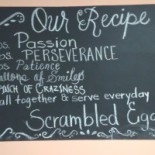 Our Recipe
os. Passion
os. PERSEVERANCE
os. Patience
ollops of Smiles
PINCH OF CRAZINESS
all together & serve everyday
Scrambled Egg